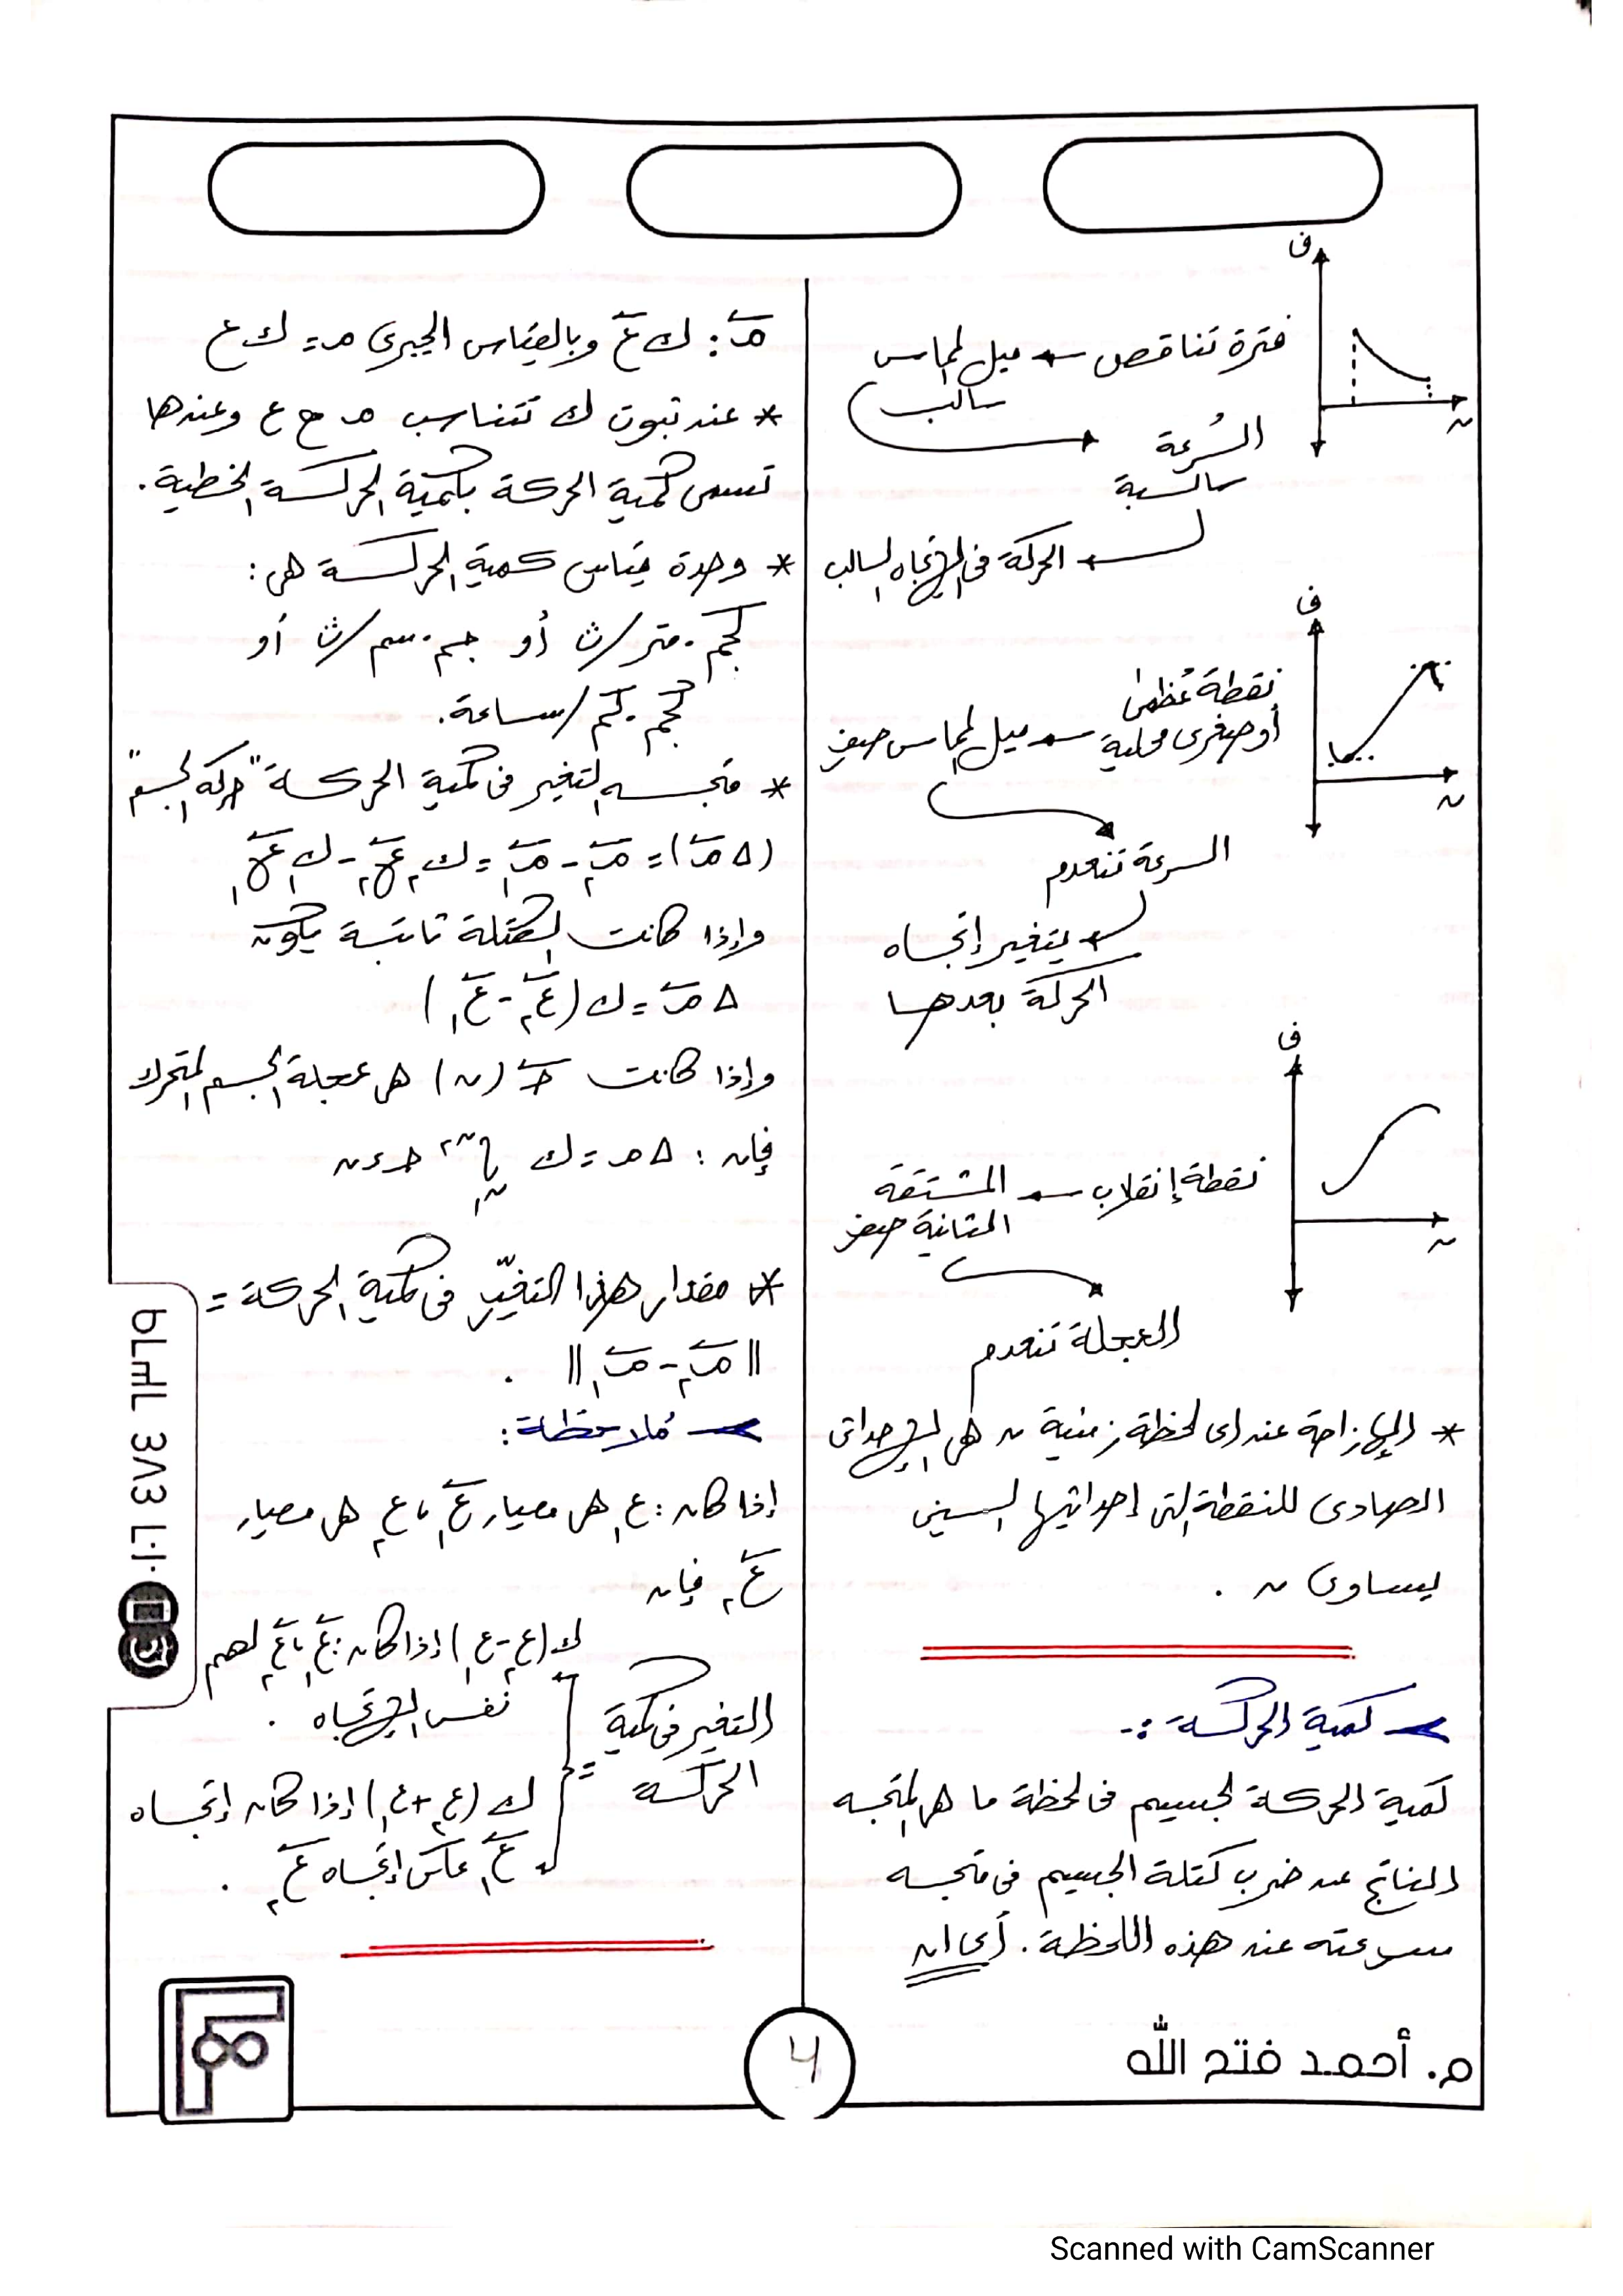 ف
فترة تناقص ← ميل المماس
سالب
السُرعة
سالبة
ن
← الحركة فى الإتجاه السالب
ف
نقطة عُظمى
أو صغرى محلية ← ميل المماس صفر
ن
السرعة تنعدم
← يتغير إتجاه
الحركة بعدها
ف
نقطة إنقلاب ← المشتقة
الثانية صفر
ن
العجلة تنعدم
* الإزاحة عند اى لحظة زمنية ن هى الإحداثى
الصادى للنقطة التى إحداثيها السينى
يساوى ن .
كمية الحركة :-
كمية الحركة لجسيم فى لحظة ما هى المتجه
الناتج عن ضرب كتلة الجسيم فى متجه
سرعته عند هذه اللحظة . أى ان
مَ = ك عَ وبالقياس الجبرى م = ك ع
* عند ثبوت ك تتناسب م ∝ ع وعندها
تسمى كمية الحركة بكمية الحركة الخطية .
* وحدة قياس كمية الحركة هى :
كجم . متر/ث أو جم . سم/ث أو
كجم . كم/ساعة .
* متجه التغير فى كمية الحركة "حركة الجسم"
(Δ مَ) = مَ₂ - مَ₁ = ك₂ عَ₂ - ك₁ عَ₁
وإذا كانت الكتلة ثابتة يكون
Δ مَ = ك (عَ₂ - عَ₁)
وإذا كانت حَ (ن) هى عجلة الجسم المتحرك
فإن : Δ م = ك ∫ن₁ ن₂ ح ء ن
* مقدار هذا التغيّر فى كمية الحركة =
|| مَ₂ - مَ₁ || .
مُلاحظة :
إذا كان : ع₁ هى معيار عَ₁ ، ع₂ هى معيار
عَ₂ فإن
التغير فى كمية
الحركة =
ك (ع₂ - ع₁) إذا كان : عَ₁ ، عَ₂ لهم
نفس الإتجاه .
ك (ع₂ + ع₁) إذا كان إتجاه
عَ₁ عكس إتجاه عَ₂ .
م. أحمد فتح الله
4
Scanned with CamScanner